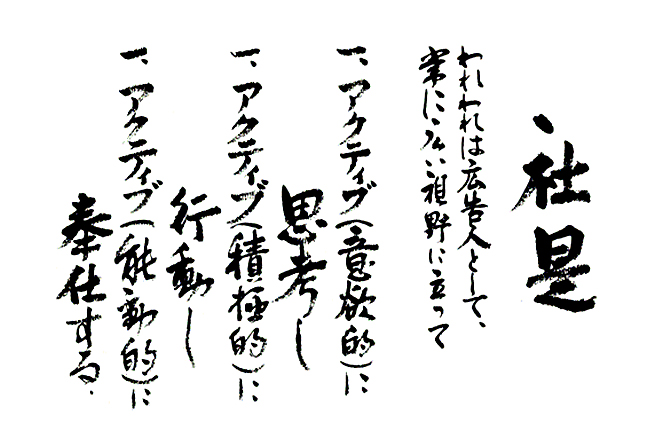 社是
われわれは広告人として、
常に広い視野に立って
一、アクティブ(意欲的)に
思考し
一、アクティブ(積極的)に
行動し
一、アクティブ(能動的)に
奉仕する.